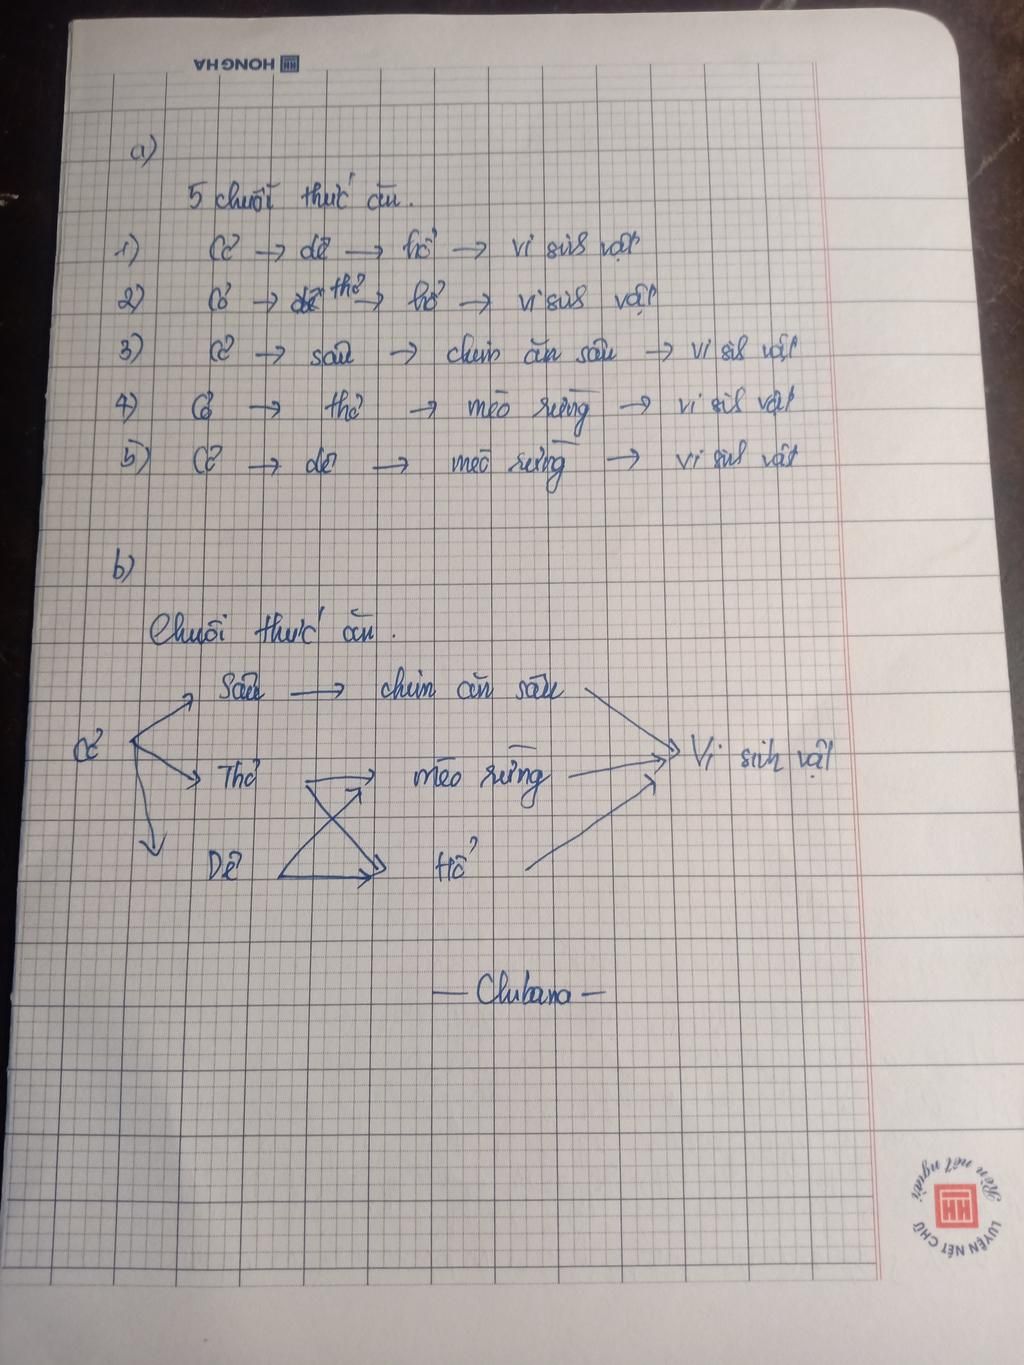 HONG HA
a)
5 chuỗi thức ăn.
1) Cỏ → dê → hổ → vi sinh vật
2) Cỏ → thỏ → hổ → vi sinh vật
3) Cỏ → sâu → chim ăn sâu → vi sinh vật
4) Cỏ → thỏ → mèo rừng → vi sinh vật
5) Cỏ → dê → mèo rừng → vi sinh vật
b)
Chuỗi thức ăn.
Sâu → chim ăn sâu
Cỏ
Thỏ
mèo rừng
Vi sinh vật
Dê
Hổ
LUYỆN NÉT CHỮ
Rèn nết người
HH